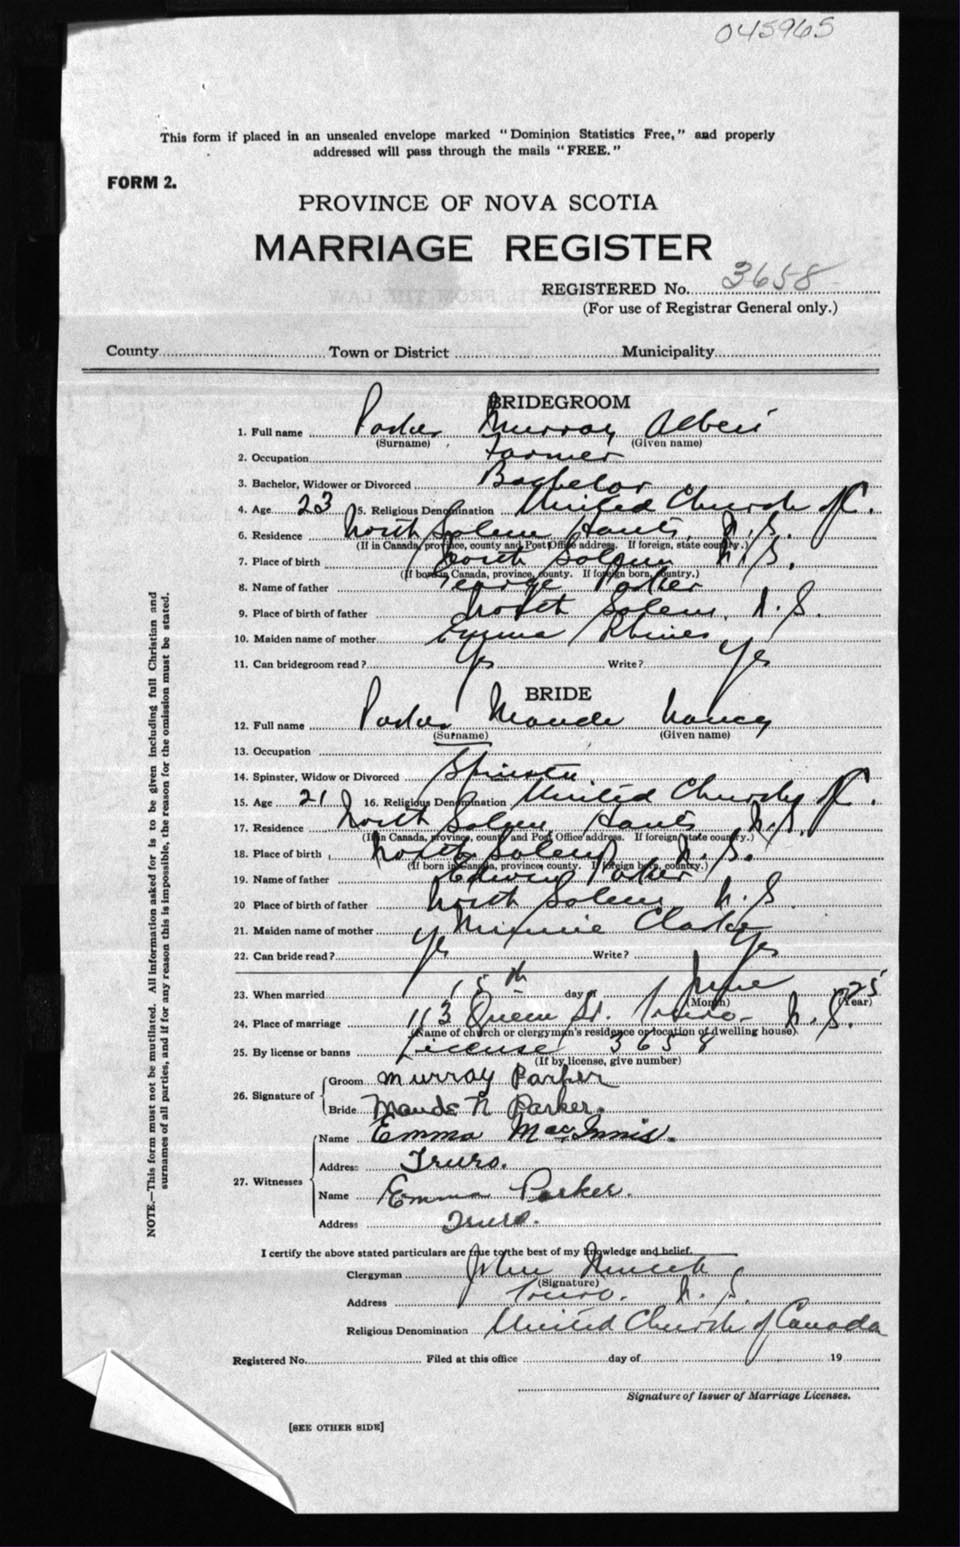 045965
This form if placed in an unsealed envelope marked "Dominion Statistics Free," and properly
addressed will pass through the mails "FREE."
FORM 2.
PROVINCE OF NOVA SCOTIA
MARRIAGE REGISTER
REGISTERED No. 3658
(For use of Registrar General only.)
County Town or District Municipality
BRIDEGROOM
1. Full name Parker Murray Albert
(Surname) (Given name)
2. Occupation Farmer
3. Bachelor, Widower or Divorced Bachelor
4. Age 23 5. Religious Denomination United Church of C.
6. Residence North Salem Hants N.S.
(If in Canada, province, county and Post Office address. If foreign, state country.)
7. Place of birth North Salem N.S.
(If born in Canada, province, county. If foreign born, country.)
8. Name of father George Parker
9. Place of birth of father North Salem, N.S.
10. Maiden name of mother Emma Rhines
11. Can bridegroom read? Yes Write? Yes
BRIDE
12. Full name Parker Maude Nancy
(Surname) (Given name)
13. Occupation
14. Spinster, Widow or Divorced Spinster
15. Age 21 16. Religious Denomination United Church of C.
17. Residence North Salem Hants N.S.
(If in Canada, province, county and Post Office address. If foreign state country.)
18. Place of birth North Salem N.S.
(If born in Canada, province, county. If foreign born, country.)
19. Name of father Edwin Parker
20 Place of birth of father North Salem N.S.
21. Maiden name of mother Minnie Clarke
22. Can bride read? Yes Write? Yes
23. When married 15th day of June 25
(Month) (Year)
24. Place of marriage 113 Queen St. Truro N.S.
(Name of church or clergyman's residence or location of dwelling house)
25. By license or banns License 3658
(If by license, give number)
26. Signature of Groom Murray Parker
Bride Maude N Parker.
27. Witnesses Name Emma MacInnis.
Address Truro.
Name Emma Parker.
Address Truro.
I certify the above stated particulars are true to the best of my knowledge and belief.
Clergyman John
(Signature)
Address Truro. N.S.
Religious Denomination United Church of Canada
Registered No. Filed at this office day of 19
Signature of Issuer of Marriage Licenses.
[SEE OTHER SIDE]
NOTE.—This form must not be mutilated. All information asked for is to be given including full Christian and
surnames of all parties, and if for any reason this is impossible, the reason for the omission must be stated.